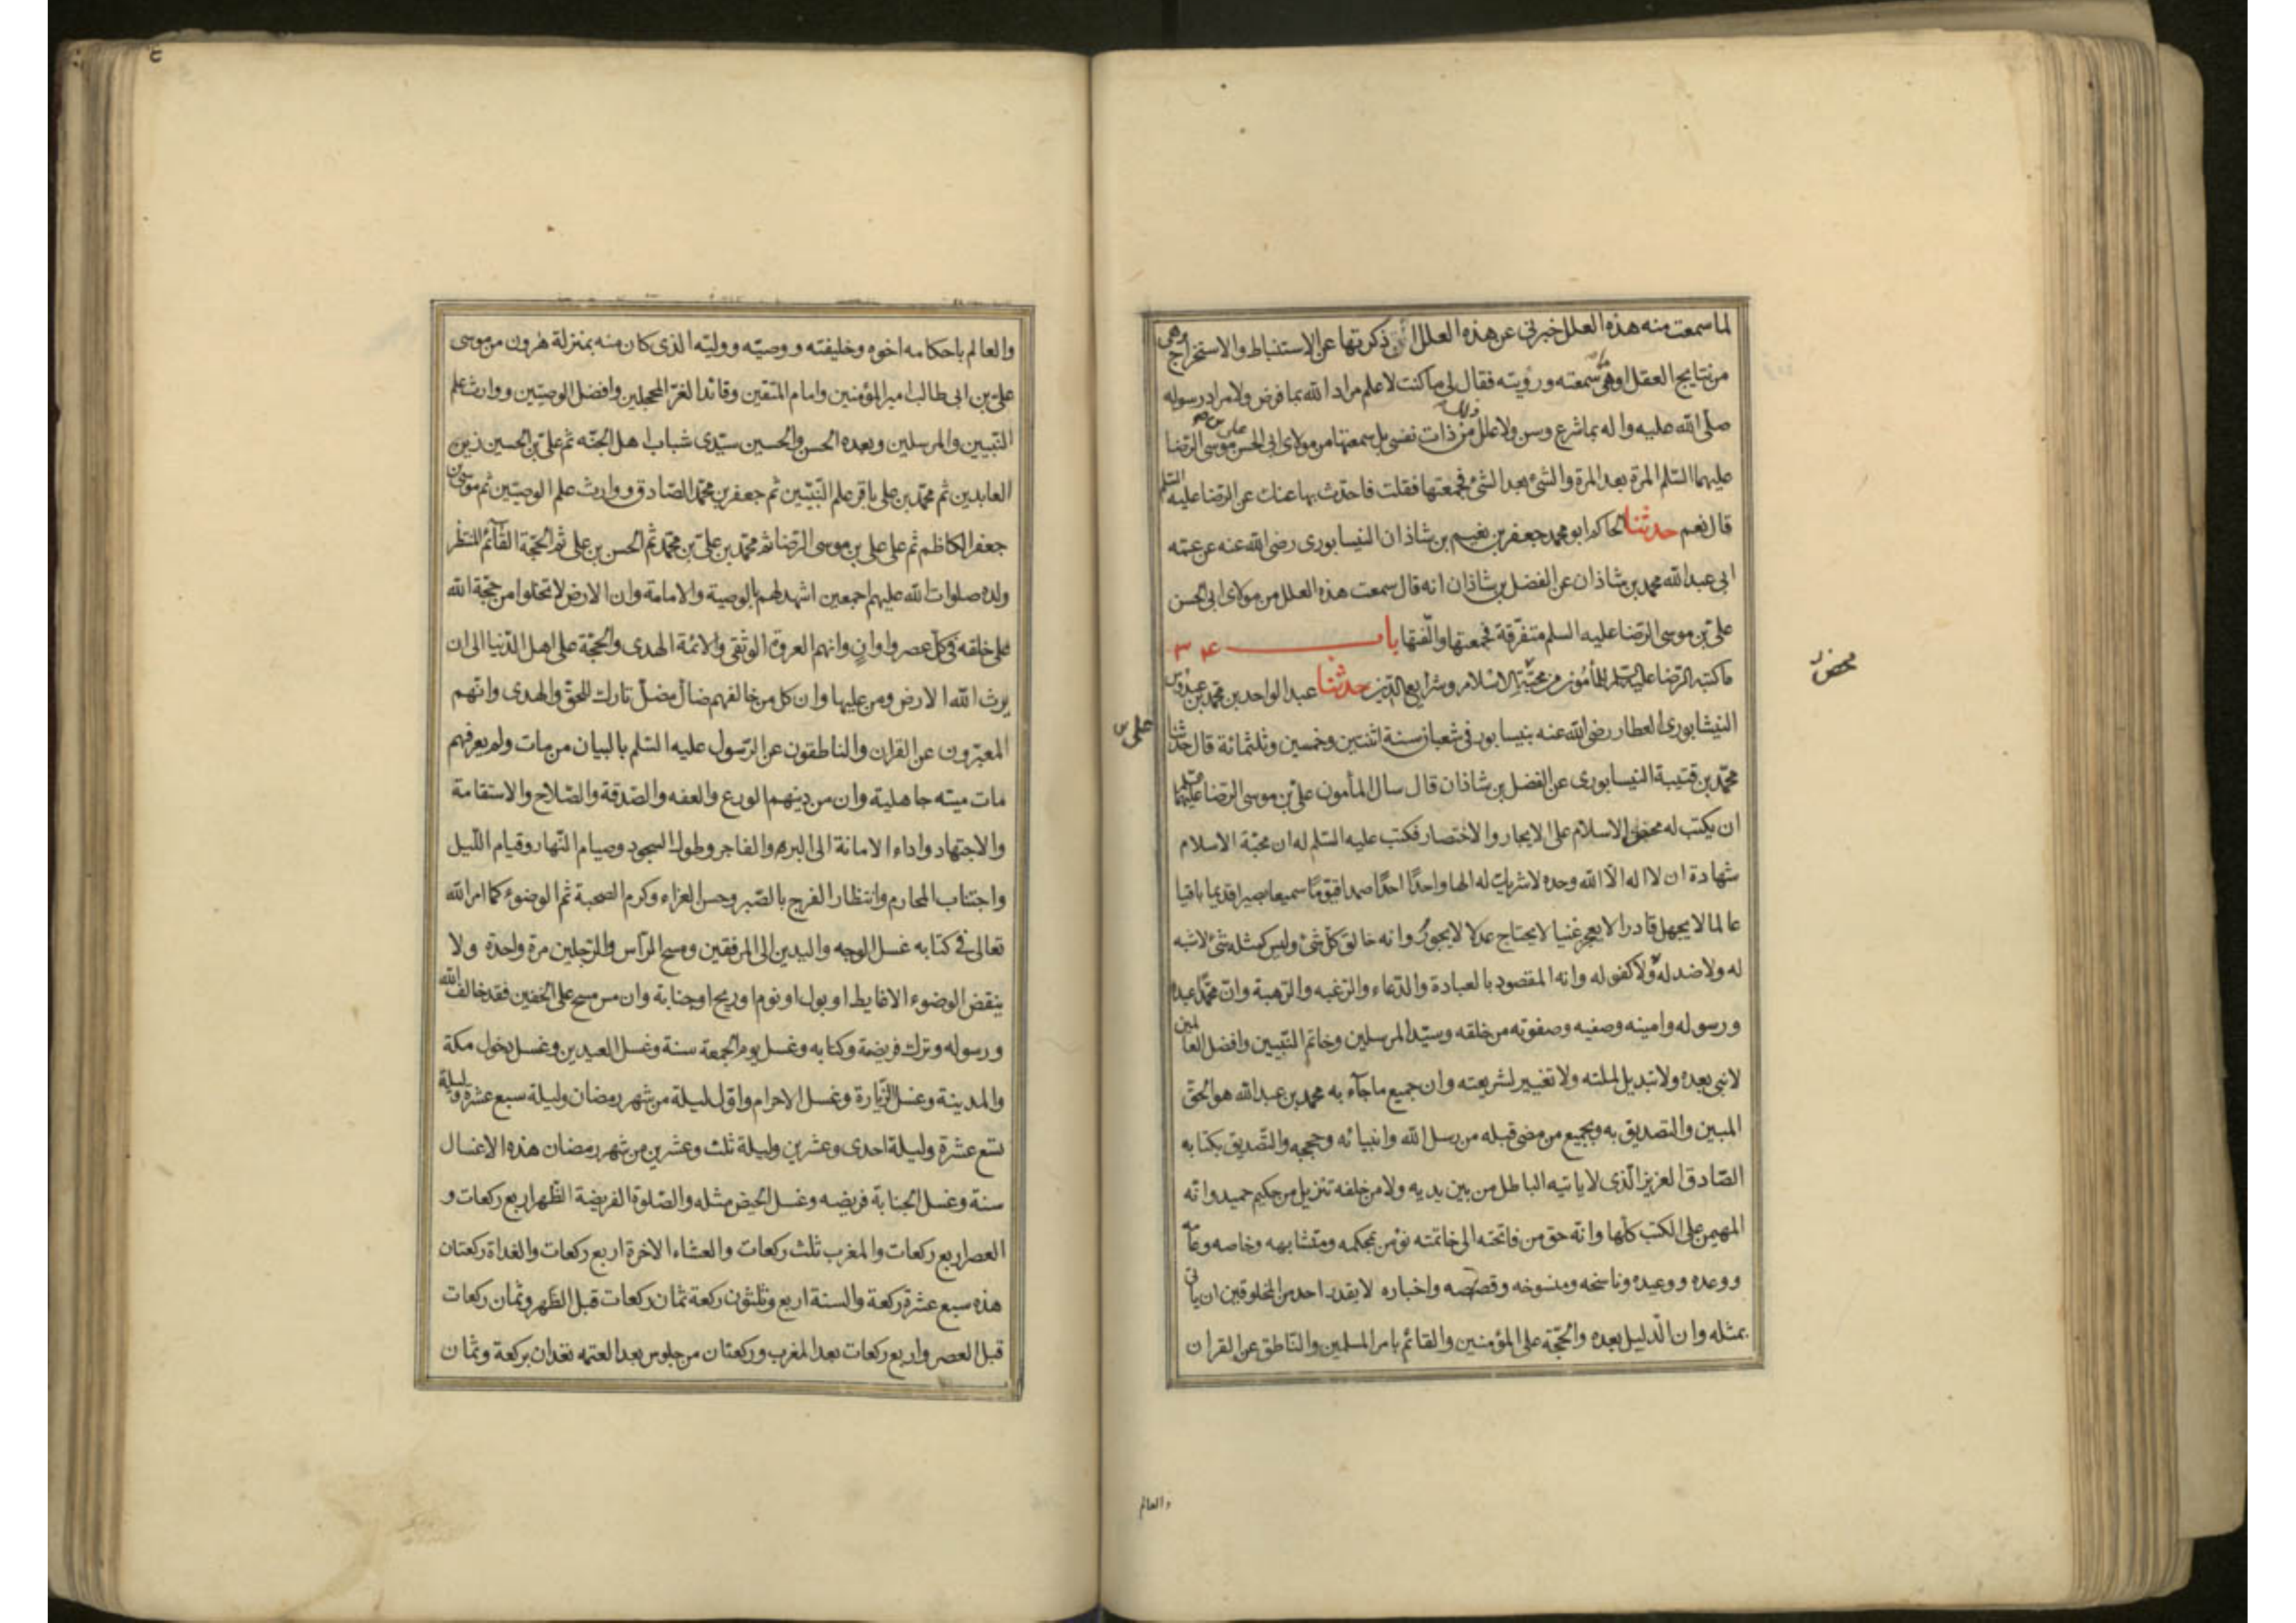 لما سمعت منه هذه العلل خبرني عن هذه العلل التي ذكرتها عن الاستنباط والاستخراج وهي
من نتايج العقل او هي مما سمعته ورويته فقال لي ما كنت لاعلم مراد الله بما فرض ولا مراد رسوله
صلى الله عليه واله بما شرع وسن ولا علل ذلك من ذات نفسي بل سمعتها من مولاي ابي الحسن علي بن موسى الرضا
عليهما السلم المرة بعد المرة والشئ بعد الشئ فجمعتها فقلت فاحدث بها عنك عن الرضا عليه السلم
قال نعم حدثنا الحاكم ابو محمد جعفر بن نعيم بن شاذان النيسابوري رضى الله عنه عن عمه
ابي عبد الله محمد بن شاذان عن الفضل بن شاذان انه قال سمعت هذه العلل من مولاي ابي الحسن
علي بن موسى الرضا عليه السلم متفرقة فجمعتها والّفتها باب ٣٤
ما كتبه الرضا عليه السلم للمأمون من محبة الاسلام وشرايع الدين حدثنا عبد الواحد بن محمد بن عبدوس
محض
النيشابوري العطار رضى الله عنه بنيسابور في شعبان سنة اثنتين وخمسين وثلثمائة قال حدثنا
علي بن
محمد بن قتيبة النيسابوري عن الفضل بن شاذان قال سال المأمون علي بن موسى الرضا عليهما
ان يكتب له محض الاسلام على الايجاز والاختصار فكتب عليه السلم له ان محبة الاسلام
شهادة ان لا اله الا الله وحده لا شريك له الها واحدًا احدًا صمدا قيوّمًا سميعا بصيرا قديما باقيا
عالما لا يجهل قادرا لا يعجز غنيا لا يحتاج عدلا لا يجور وانه خالق كل شئ وليس كمثله شئ لا شبه
له ولا ضد له ولا كفو له وانه المقصود بالعبادة والدعاء والرغبه والرهبة وان محمّدًا عبده
ورسوله وامينه وصفيه وصفوته من خلقه وسيّد المرسلين وخاتم النبيين وافضل العالمين
لا نبي بعده ولا تبديل لملته ولا تغيير لشريعته وان جميع ما جآء به محمد بن عبد الله هو الحق
المبين والتصديق به وبجميع من مضى قبله من رسل الله وانبيائه وحججه والتصديق بكتابه
الصادق العزيز الذى لا ياتيه الباطل من بين يديه ولا من خلفه تنزيل من حكيم حميد وانه
المهيمن على الكتب كلها وانه حق من فاتحته الى خاتمته نؤمن بمحكمه ومتشابهه وخاصه وعامه
ووعده ووعيده وناسخه ومنسوخه وقصصه واخباره لا يقدر احد من المخلوقين ان ياتي
بمثله وان الدليل بعده والحجّة على المؤمنين والقائم بامر المسلمين والناطق عن القران
والعالم
والعالم باحكامه اخوه وخليفته ووصيّه ووليّه الذى كان منه بمنزلة هٰرون من موسى
على بن ابي طالب امير المؤمنين وامام المتقين وقائد الغرّ المحجلين وافضل الوصيّين ووارث علم
النّبيين والمرسلين وبعده الحسن والحسين سيّدى شباب اهل الجنّه ثم علي بن الحسين زين
العابدين ثم محمد بن علي باقر علم النّبيّين ثم جعفر بن محمد الصّادق ووارث علم الوصيّين ثم موسى بن
جعفر الكاظم ثم على على بن موسى الرّضا ثم محمد بن علي ثم علي بن محمد ثم الحسن بن علي ثم الحجّة القآئم المنتظر
ولده صلوات الله عليهم اجمعين اشهد لهم بالوصية والامامة وان الارض لا تخلوا من حجّة الله
على خلقه في كل عصر واوانٍ وانهم العروة الوثقى والائمة الهدى والحجّة على اهل الدّنيا الى ان
يرث الله الارض ومن عليها وان كل من خالفهم ضال مضلّ تارك للحقّ والهدى وانهم
المعبّرون عن القران والناطقون عن الرّسول عليه السّلم بالبيان من مات ولم يعرفهم
مات ميته جاهلية وان من دينهم الورع والعفه والصّدقة والصّلاح والاستقامة
والاجتهاد واداء الامانة الى البر والفاجر وطول السجود وصيام النّهار وقيام اللّيل
واجتناب المحارم وانتظار الفرج بالصّبر وحسن العزاء وكرم الصحبة ثم الوضوء كما امر الله
تعالى في كتابه غسل الوجه واليدين الى المرفقين ومسح الرّأس والرّجلين مرة واحدة ولا
ينقض الوضوء الا غايط او بول او نوم او ريح او جنابة وان من مسح على الخفين فقد خالف الله
ورسوله وترك فريضة وكتابه وغسل يوم الجمعة سنة وغسل العيدين وغسل دخول مكة
والمدينة وغسل الزّيارة وغسل الاحرام واول ليلة من شهر رمضان وليلة سبع عشرة وليلة
تسع عشرة وليلة احدى وعشرين وليلة ثلث وعشرين من شهر رمضان هذه الاغسال
سنة وغسل الجنابة فريضه وغسل الحيض مثله والصّلوة الفريضة الظّهر اربع ركعات و
العصر اربع ركعات والمغرب ثلث ركعات والعشاء الاخرة اربع ركعات والغداة ركعتان
هذه سبع عشرة ركعة والسنة اربع وثلثون ركعة ثمان ركعات قبل الظّهر وثمان ركعات
قبل العصر واربع ركعات بعد المغرب وركعتان من جلوس بعد العتمه تعدان بركعة وثمان